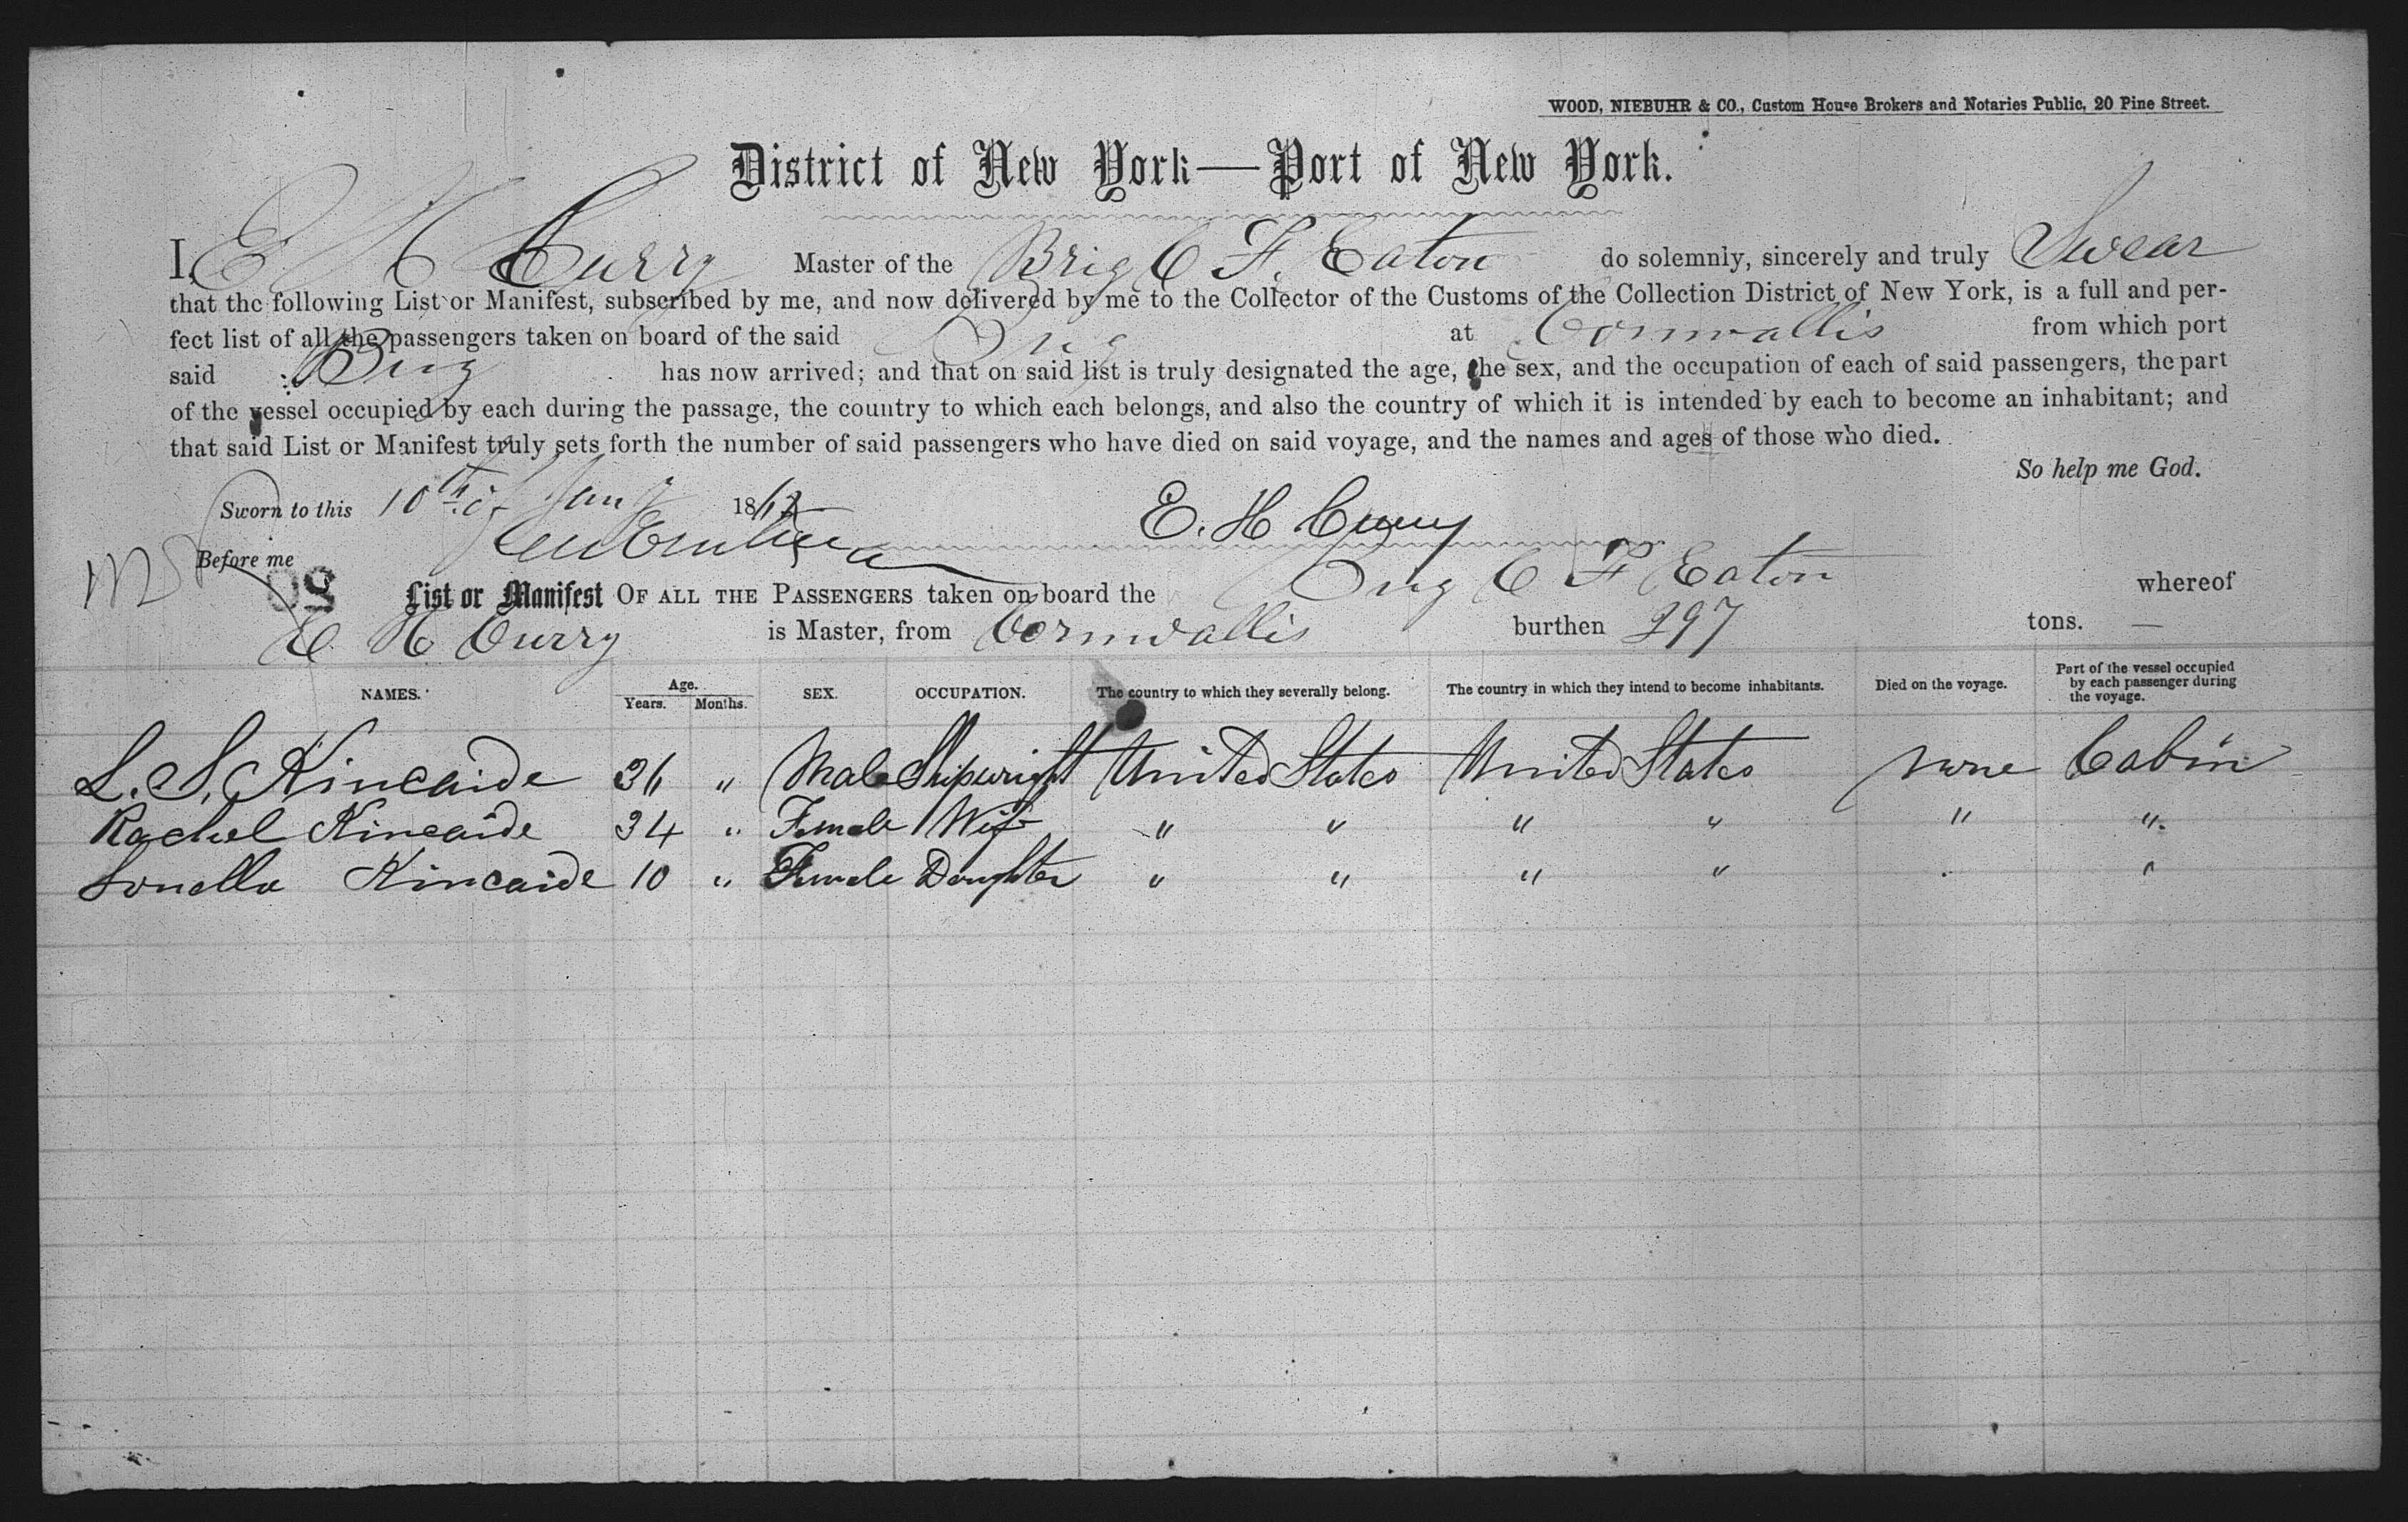 WOOD, NIEBUHR & CO., Custom House Brokers and Notaries Public, 20 Pine Street.
District of New York—Port of New York.
I, E H Curry Master of the Brig C F. Eaton do solemnly, sincerely and truly Swear
that the following List or Manifest, subscribed by me, and now delivered by me to the Collector of the Customs of the Collection District of New York, is a full and per-
fect list of all the passengers taken on board of the said Brig at Cornwallis from which port
said Brig has now arrived; and that on said list is truly designated the age, the sex, and the occupation of each of said passengers, the part
of the vessel occupied by each during the passage, the country to which each belongs, and also the country of which it is intended by each to become an inhabitant; and
that said List or Manifest truly sets forth the number of said passengers who have died on said voyage, and the names and ages of those who died.
So help me God.
Sworn to this 10th of Jany 186 E. H Curry
Before me
50 List or Manifest OF ALL THE PASSENGERS taken on board the Brig C F Eaton whereof
E H Curry is Master, from Cornwallis burthen 297 tons. —
NAMES. Age. Years. Months. SEX. OCCUPATION. The country to which they severally belong. The country in which they intend to become inhabitants. Died on the voyage. Part of the vessel occupied by each passenger during the voyage.
L. S. Kincaide 36 " Male Shipwright United States United States None Cabin
Rachel Kincaide 34 " Female Wife " " " " " "
Kincaide 10 " Female Daughter " " " " "